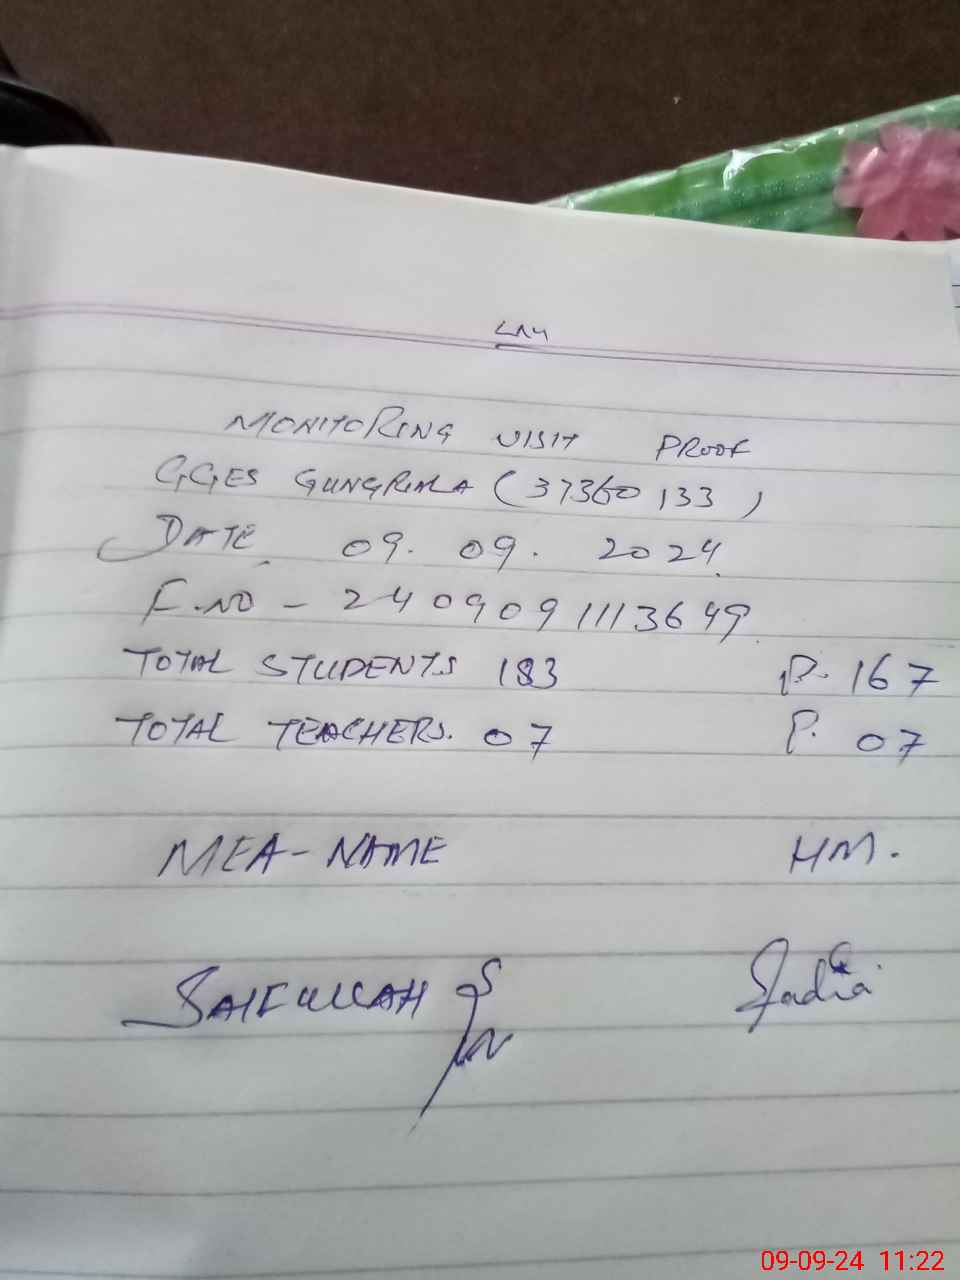 MONITORING VISIT PROOF
GGES GUNGRILA (37360133)
DATE 09. 09. 2024
F.NO - 2409091113649
TOTAL STUDENTS 183 P. 167
TOTAL TEACHERS. 07 P. 07
MEA-NAME HM.
SAIFULLAH
09-09-24 11:22